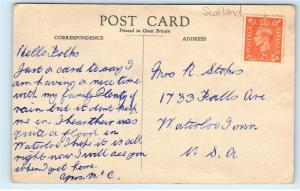 Scotland
POST CARD
Printed in Great Britain
CORRESPONDENCE
ADDRESS
POSTAGE
REVENUE
Hello Folks
Just a card to say I
am having a nice time
with my family Plenty of
rain but it dont help
me in I hear there was
quite a flood in
Waterloo I hope it is all
right now I will see you
when I get home.
Mrs R. Stokes
1733 Falls Ave
Waterloo Iown
U. S. A